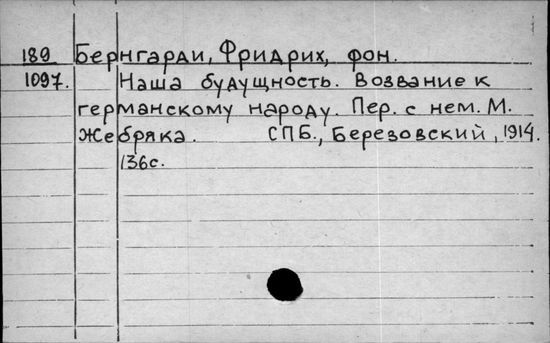 189 Бернгарди, Фридрих, фон.
1097. Наша будущность. Возвание к
германскому народу. Пер. с нем. М.
Жебряка. СПБ., Березовский, 1914.
136с.